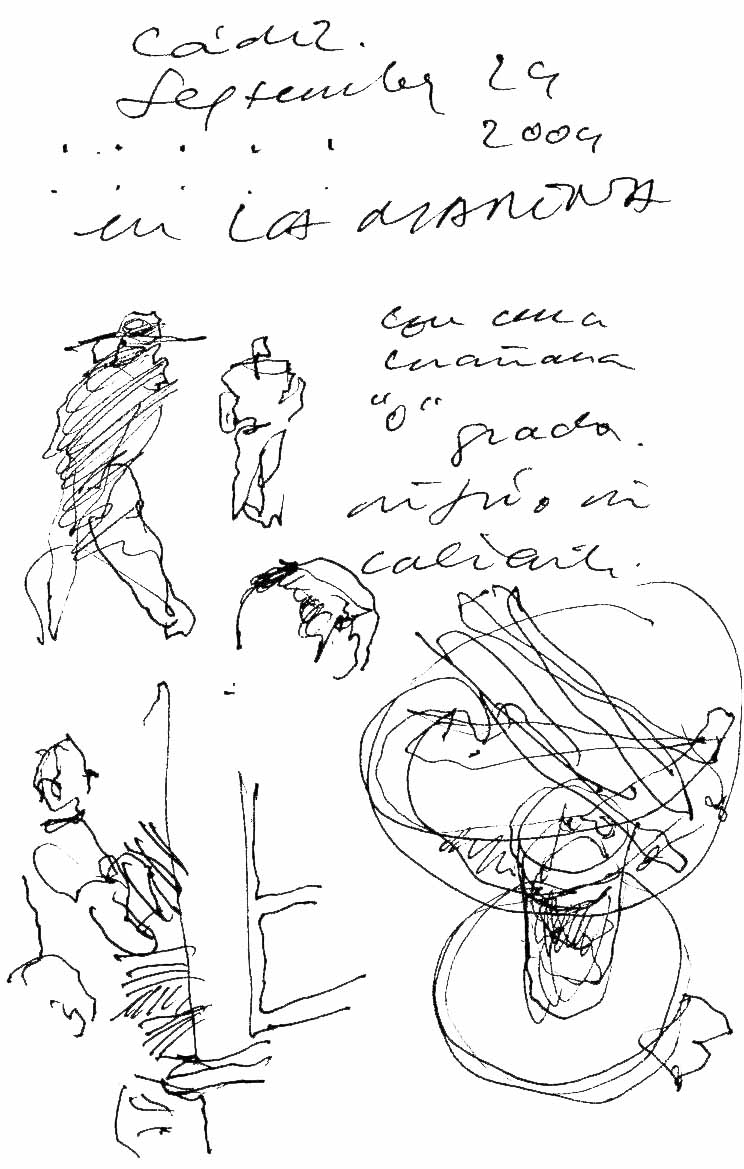 Cádiz.
September 29
2009
en LA MARINA
con una
mañana
"0"
grados.
ni frío ni
caliente.